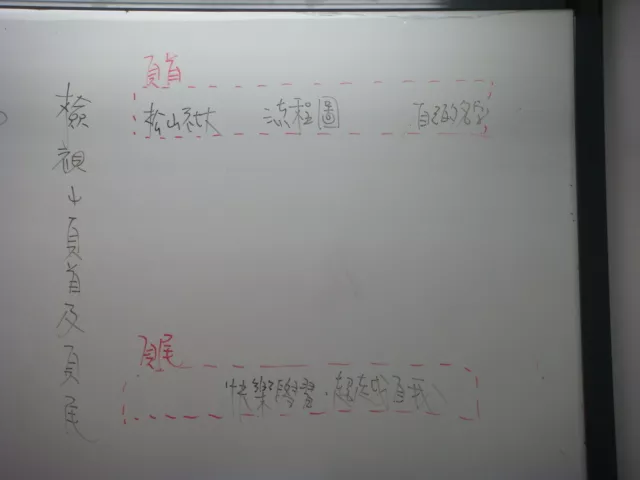 檢視↓頁首及頁尾
頁首
松山社大 流程圖 自己的名字
頁尾
快樂學習,超越自我